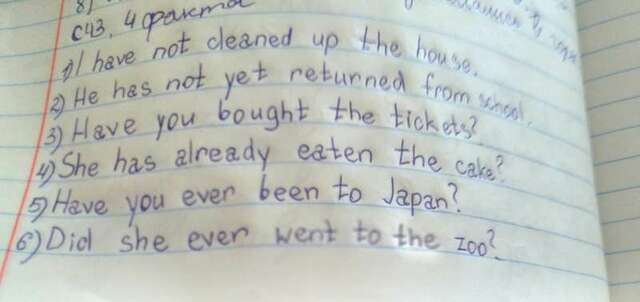 8)
с43, 4 факта
1) I have not cleaned up the house.
2) He has not yet returned from school.
3) Have you bought the tickets?
4) She has already eaten the cake?
5) Have you ever been to Japan?
6) Did she ever went to the zoo?